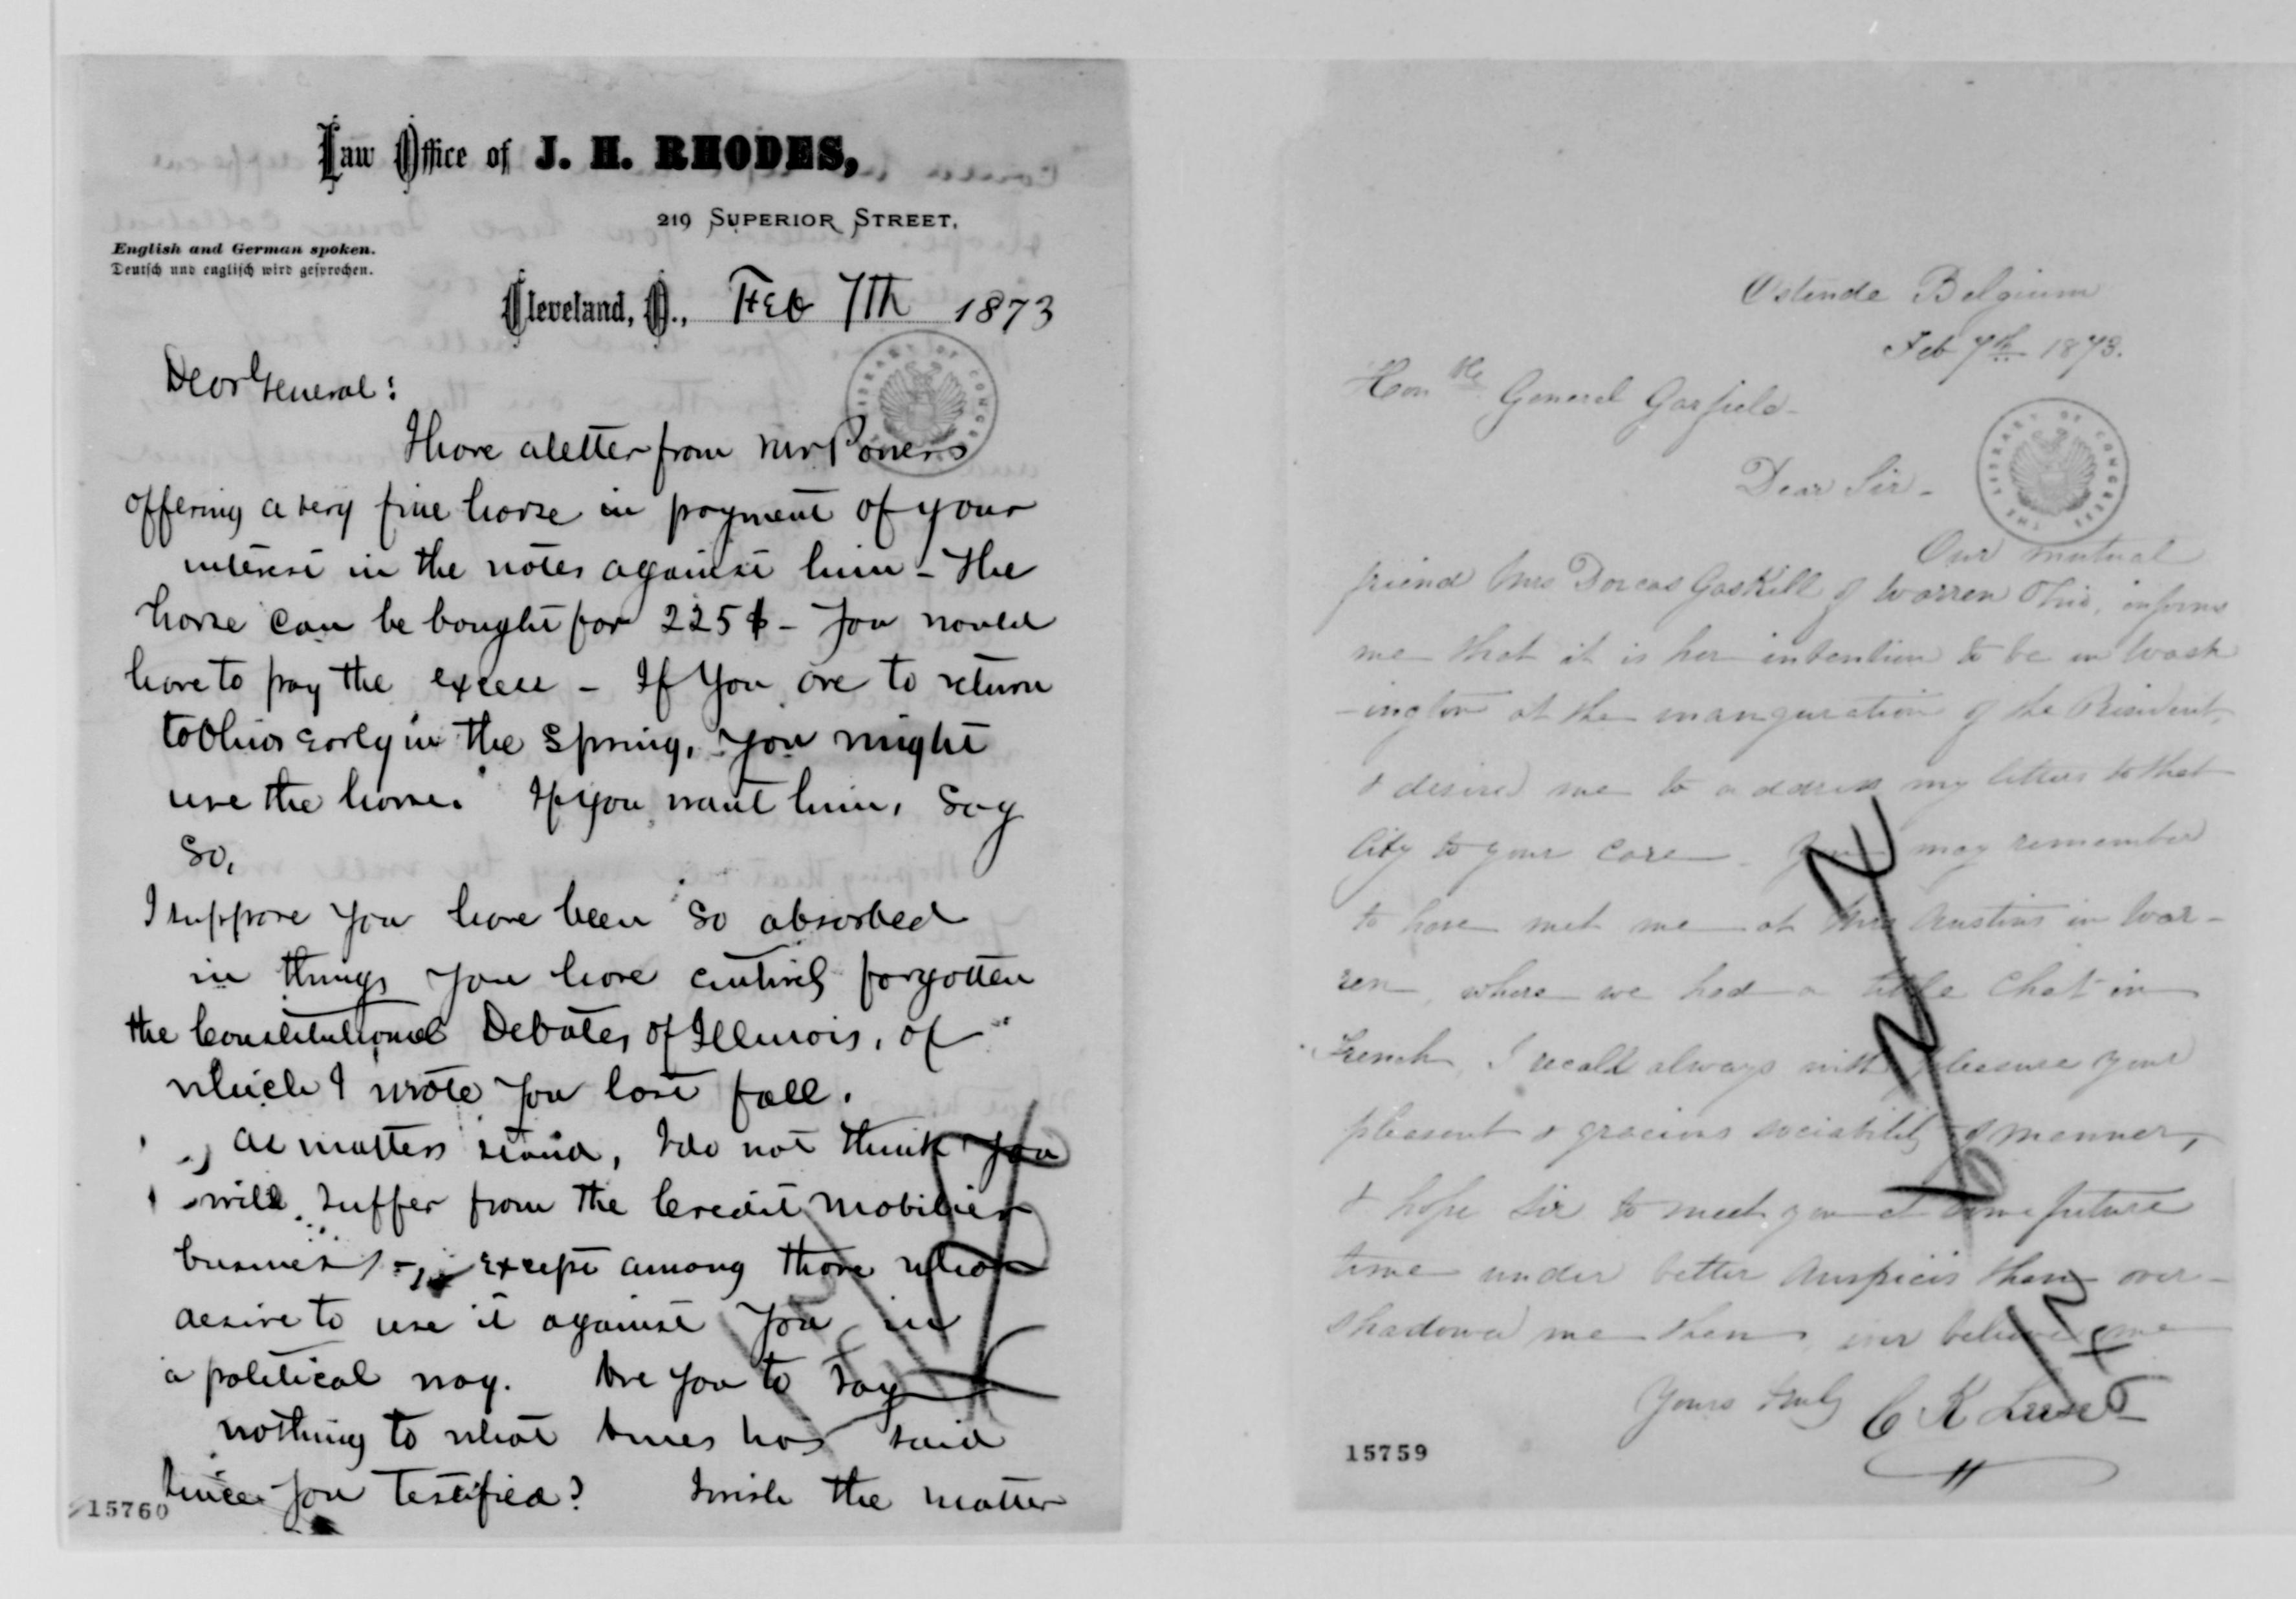 Law Office of J. H. RHODES,
219 SUPERIOR STREET.
English and German spoken.
Deutsch und englisch wird gesprochen.
Cleveland, O., Feb 7th 1873
Dear General:
I have a letter from Mr Powers
offering a very fine horse in payment of your
interest in the notes against him - The
horse can be bought for 225 $ - You would
have to pay the excess - If you are to return
to Ohio early in the Spring, you might
use the horse. If you want him, say
so.
I suppose you have been so absorbed
in things you have entirely forgotten
the Constitutional Debates of Illinois, of
which I wrote you last fall.
As matters stand, I do not think you
will suffer from the Credit Mobilier
business, except among those who
desire to use it against you in
a political way. Are you to say
nothing to what Ames has said
since you testified? I wish the matter
15760
Ostende Belgium
Feb 7th 1873.
Honble General Garfield -
Dear Sir -
Our mutual
friend Mrs Dorcas Gaskill of Warren Ohio, informs
me that it is her intention to be in Wash
-ington at the inauguration of the President,
& desired me to address my letters to that
City to your care - You may remember
to have met me at Mrs Austins in War-
ren, where we had a little chat in
French, I recall always with pleasure your
pleasant & gracious sociability of manner,
& hope Sir to meet you at some future
time under better auspices than over-
shadowed me then, ever believe me
Yours truly C K
15759
THE LIBRARY OF CONGRESS